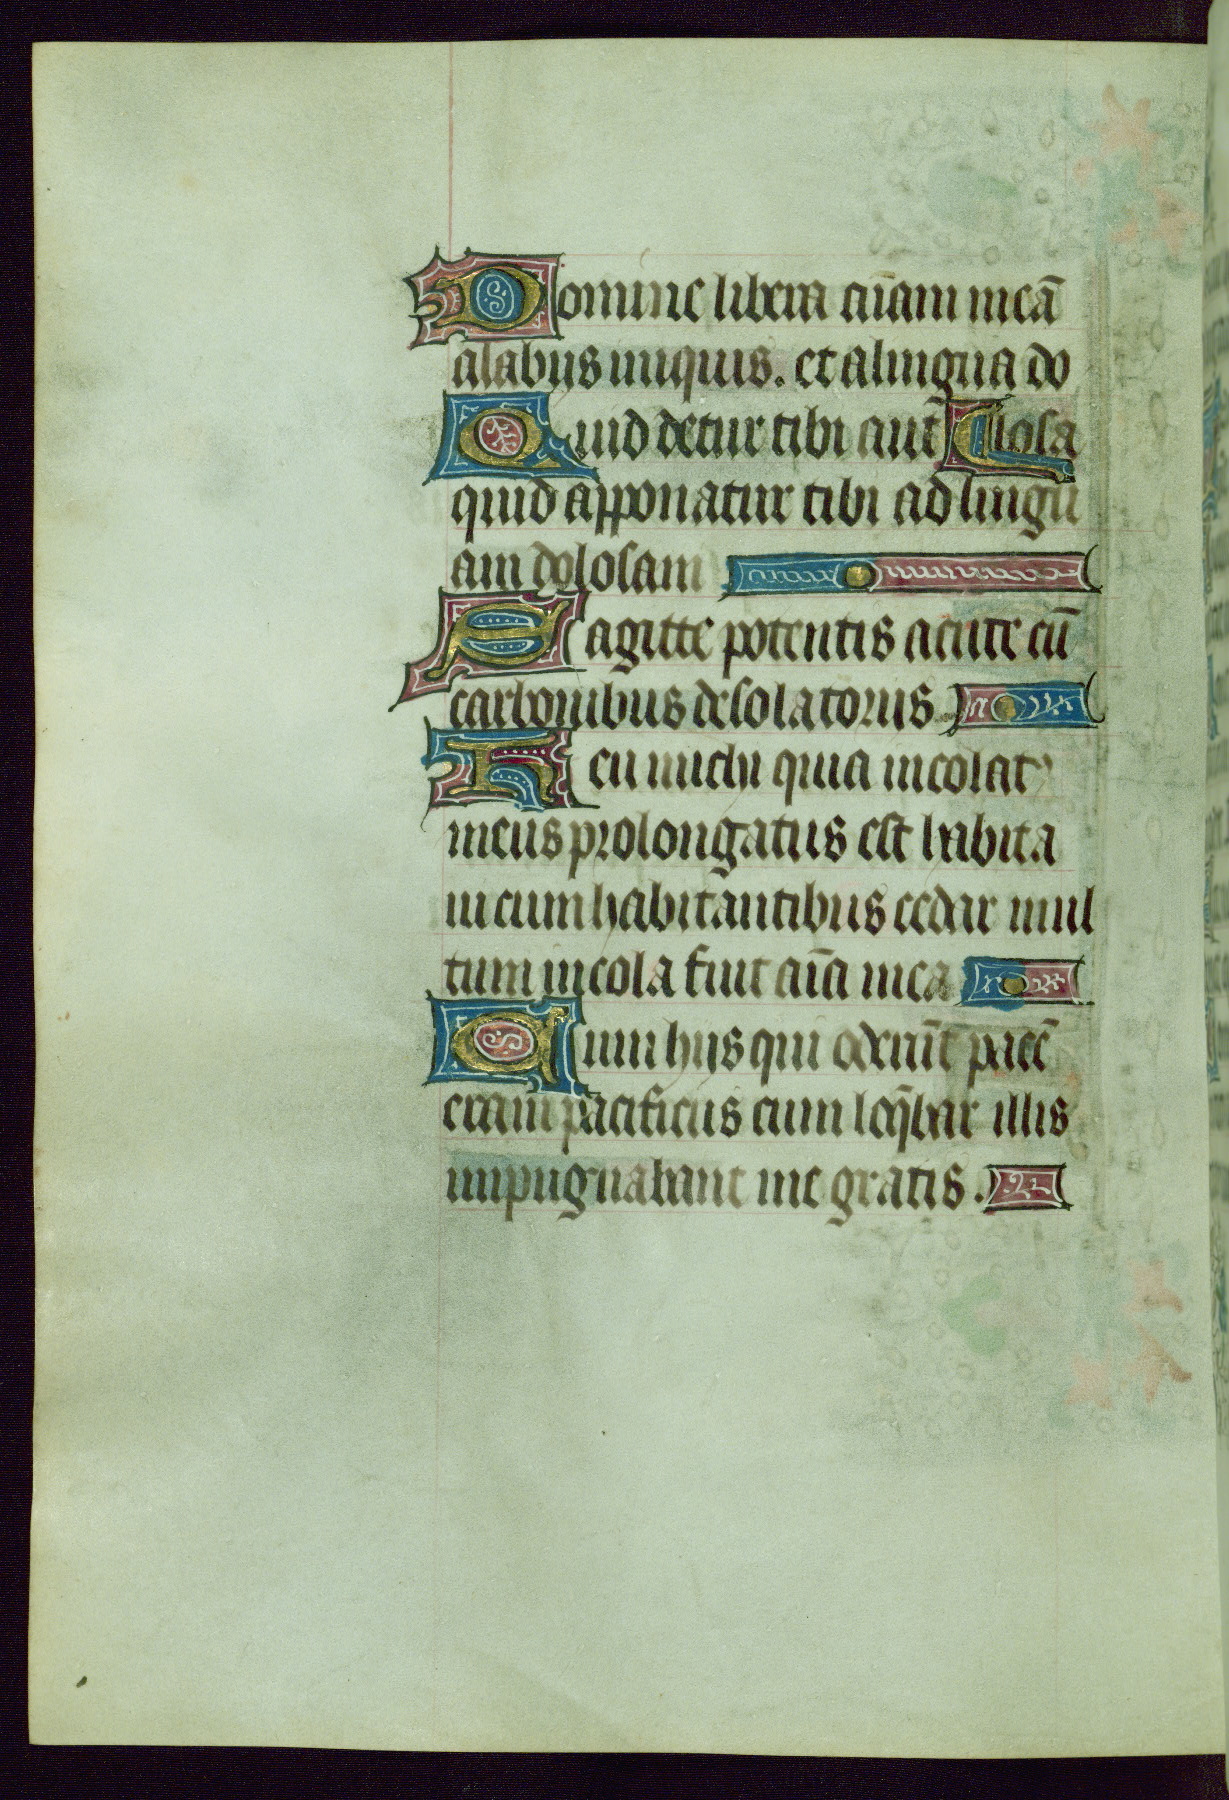 Domine libera aīam meā
a labiis iniquis. et a lingua do
Quid detur tibi aut̄ losa
quid apponatur tibi ad lingu
am dolosam
Sagitte potentis acute cū
carbonibus desolatoriis.
Heu michi quia incolatꝰ
meus prolongatus est habita
ui cum habitantibus cedar mul
tum incola fuit aīa mea
Cum hiis qui oderūt pacē
eram pacificus cum loq̄bar illis
impugnabant me gratis.